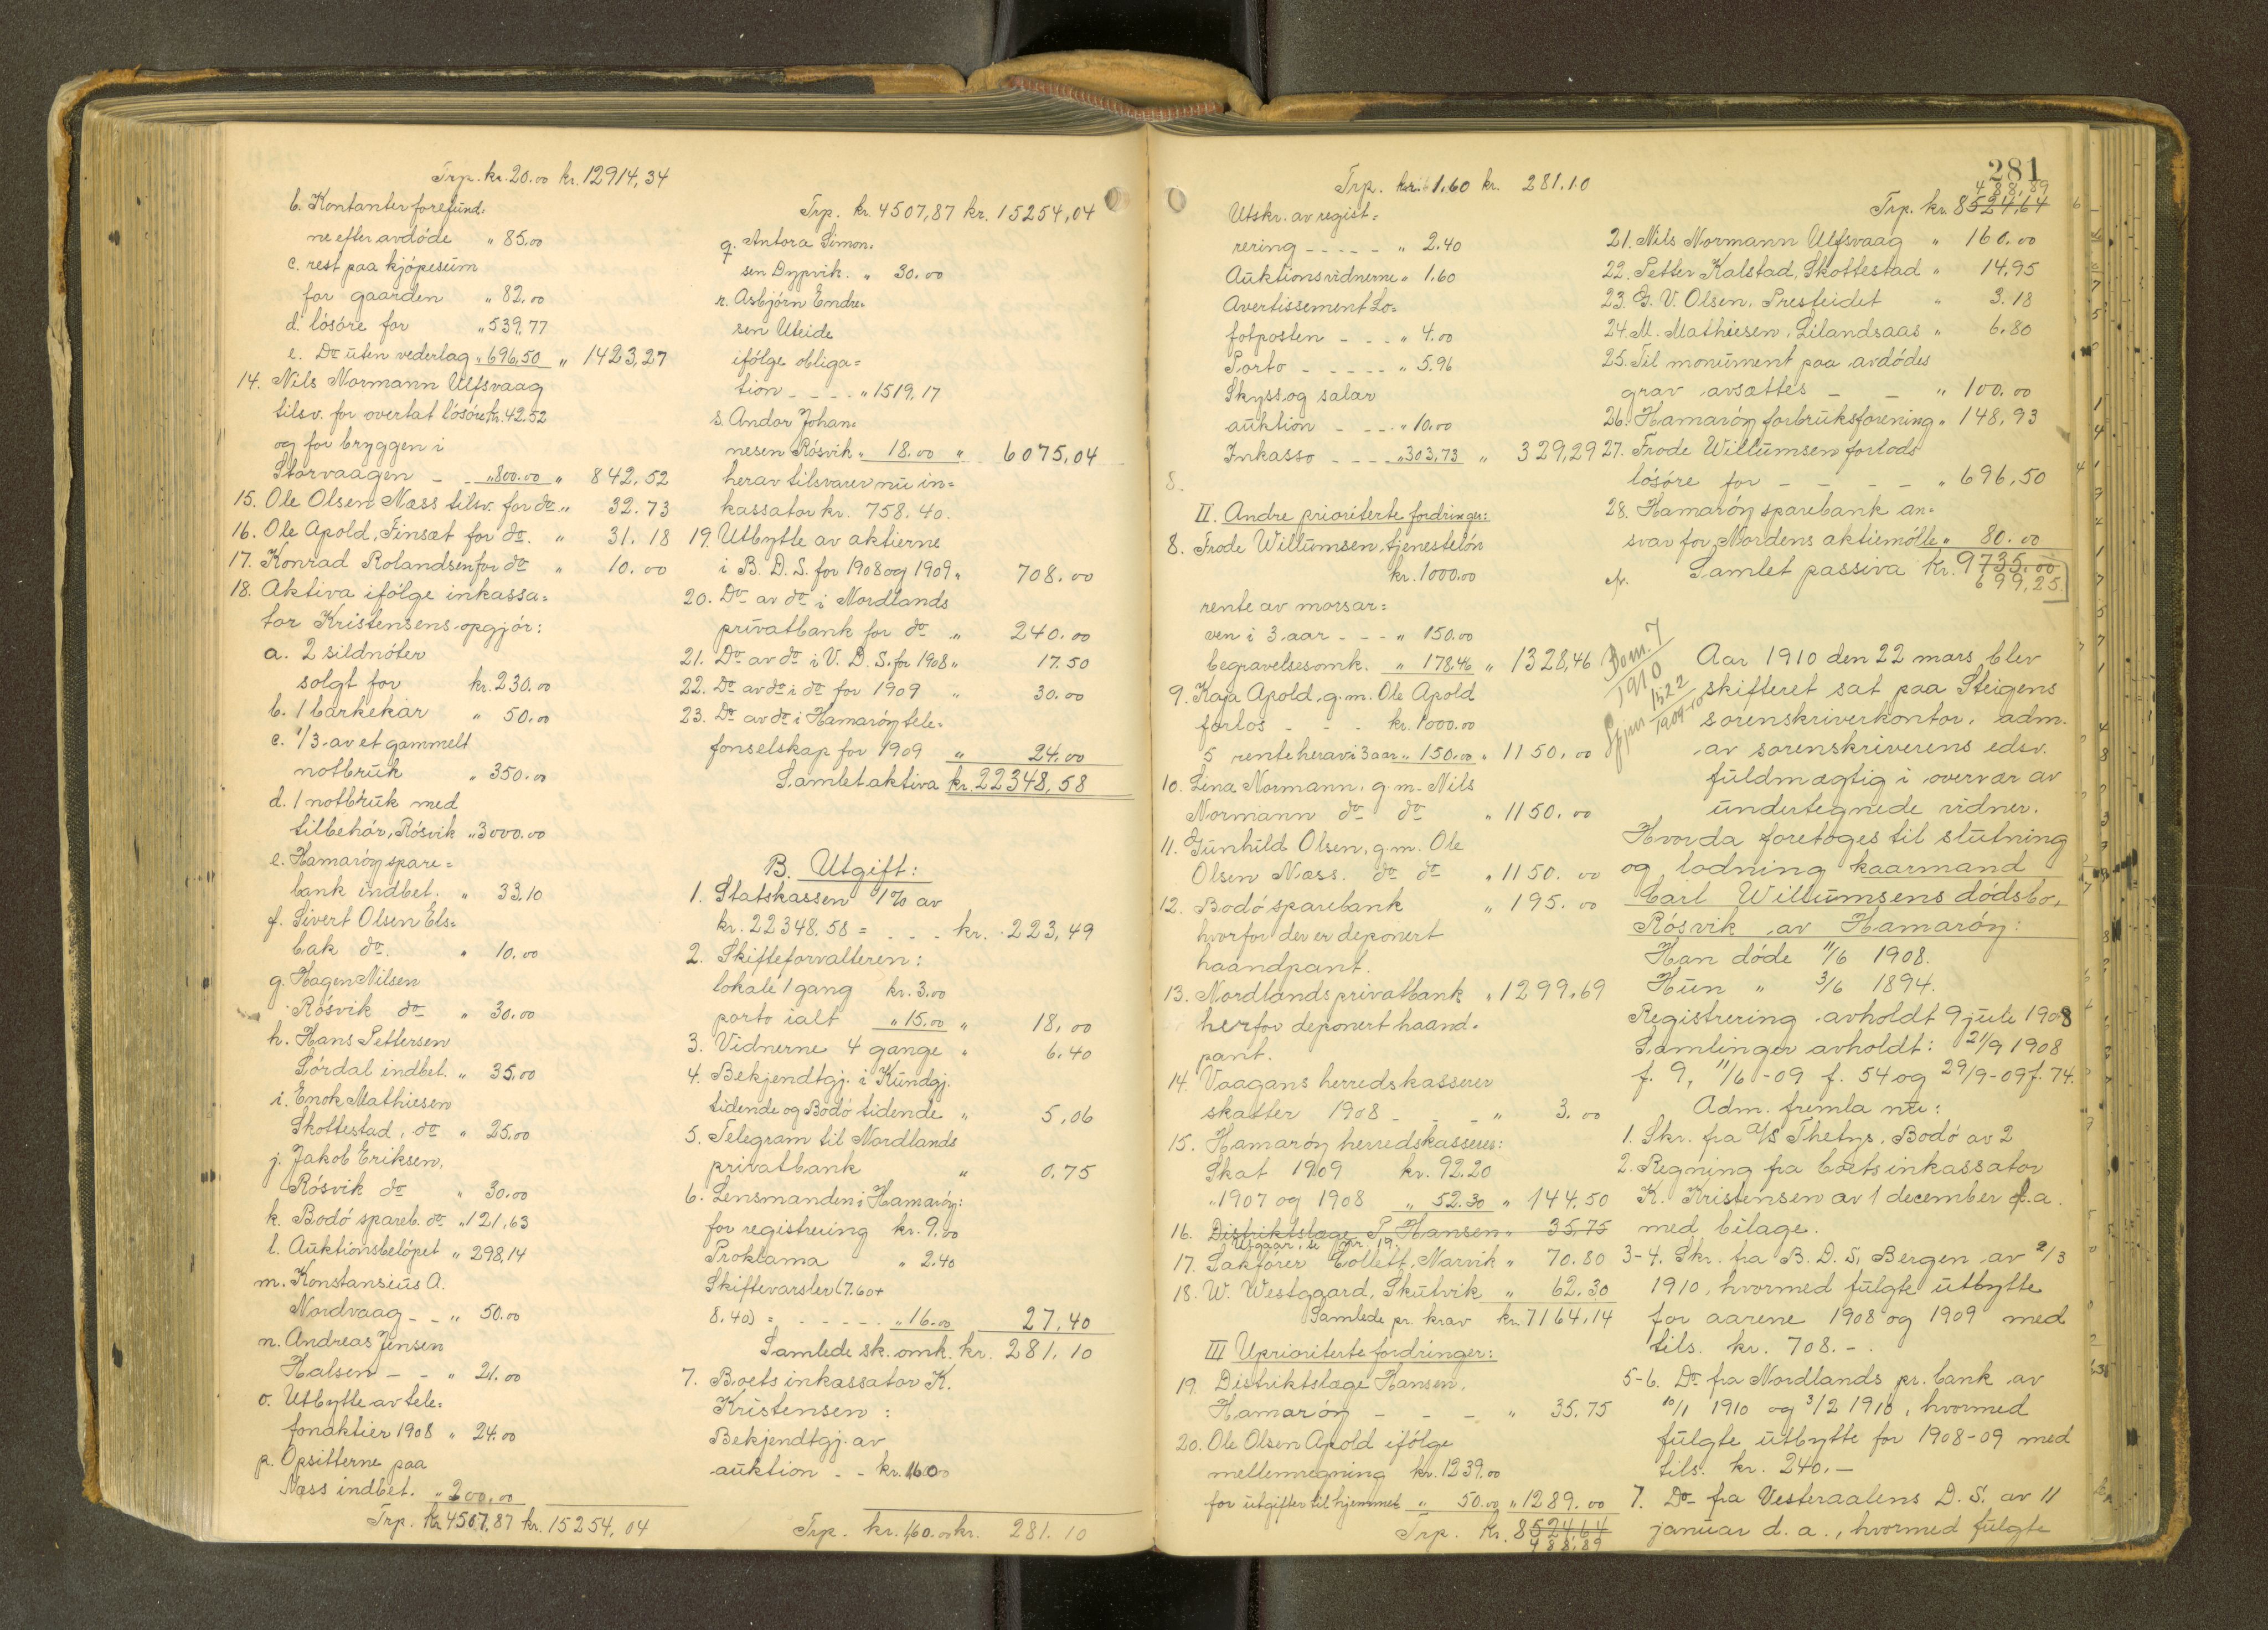 Trp. kr. 20.00 kr. 12914,34
b. Kontanter forefund=
ne efter avdöde " 85.00
c. rest paa kjöpesum
for gaarden " 82.00
d. lösöre for " 539,77
e. Do uten vederlag " 696,50 " 1423,27
14. Nils Normann Ulfsvaag
tilsv. for overtat lösöre kr. 42.52
og for bryggen i
Storvaagen - - " 800.00 " 842,52
15. Ole Olsen Næss tilsv. for do " 32.73
16. Ole Apold, Finsæt for do. " 31.18
17. Konrad Rolandsen for do " 10.00
18. Aktiva ifölge inkassa=
tor Kristensens opgjör:
a. 2 sildnöter
solgt for kr. 230.00
b. 1 barkekar " 50.00
c. 1/3 av et gammelt
notbruk " 350.00
d. 1 notbruk med
tilbehör, Rösvik " 3000.00
e. Hamaröy spare=
bank indbet. " 33,10
f. Sivert Olsen Els=
bak do. " 10.00
g. Hagen Nilsen
Rösvik do " 30.00
h. Hans Pettersen
Sördal indbet. " 35.00
i. Enok Mathiesen
Skottestad, do " 25.00
j. Jakob Eriksen,
Rösvik do " 30.00
k. Bodö spareb. do. " 121,63
l. Auktionsbelöpet " 298,14
m. Konstansius A.
Nordvaag - - " 50.00
n. Andreas Jensen
Halsen - - " 21.00
o. Utbytte av tele=
fonaktier 1908 " 24.00
p. Opsitterne paa
Næss indbet. " 200.00
Trp. kr. 4507,87 kr. 15254,04
Trp. kr. 4507,87 kr. 15254,04
q. Antora Simon=
sen Dypvik. " 30.00
r. Asbjörn Endre=
sen Uteide
ifölge obliga=
tion - - - - " 1519,17
s. Andor Johan=
nesen Rösvik " 18.00 " 6075,04
herav tilsvarer nu in=
kassator kr. 758.40.
19. Utbytte av aktierne
i B. D. S. for 1908 og 1909 " 708.00
20. Do av do i Nordlands
privatbank for do " 240.00
21. Do av do i V. D. S. for 1908 " 17.50
22. Do av do i do for 1909 " 30.00
23. Do av do i Hamaröy tele=
fonselskap for 1909 " 24.00
Samlet aktiva kr. 22348,58
B. Utgift:
1. Statskassen 1% av
kr. 22348.58 = - - - kr. 223,49
2. Skifteforvalteren:
lokale 1 gang kr. 3.00
porto ialt " 15.00 " 18,00
3. Vidnerne 4 gange " 6.40
4. Bekjendtgj. i Kundgj.
tidende og Bodö tidende " 5,06
5. Telegram til Nordlands
privatbank " 0.75
6. Lensmanden i Hamaröy:
for registrering kr. 9.00
Proklama " 2.40
Skiftevarsler (7.60+
8.40) = - - - - - " 16.00 27,40
Samlede sk. omk. kr. 281,10
7. Boets inkassator K.
Kristensen:
Bekjendtgj. av
auktion - - kr. 1.60
Trp. kr. 1.60 kr. 281.10
281
Trp. kr. 1.60 kr. 281.10
Utskr. av regist=
rering - - - - - " 2.40
Auktionsvidnerne " 1.60
Avertissement Lo=
fotposten - - - " 4.00
Porto - - - - - " 5.96
Skyss og salær
auktion - - - " 10.00
Inkasso - - - - " 303,73 " 329,29
8.
II. Andre prioriterte fordringer:
8. Frode Willumsen, tjenestelön
kr. 1000.00
rente av morsar=
ven i 3 aar - - - " 150.00
begravelsesomk. " 178.46 " 1328,46
9. Kaja Apold, g. m. Ole Apold
forlos - - - kr. 1000.00
5 rente herav i 3 aar " 150.00 " 1150.00
10. Lina Normann, g. m. Nils
Normann do do " 1150.00
11. Gunhild Olsen, g. m. Ole
Olsen Næss. do do " 1150.00
12. Bodö sparebank " 195.00
hvorfor der er deponert
haandpant.
13. Nordlands privatbank " 1299.69
herfor deponert haand=
pant.
14. Vaagans herredskasserer
skatter 1908 - - - " 3.00
15. Hamaröy herredskasserer:
Skat 1909 kr. 92.20
" 1907 og 1908 " 52.30 " 144.50
16. Distriktslæge P. Hansen " 35.75
Utgaar, se nr. 19.
17. Sakförer Collett, Narvik " 70.80
18. W. Westgaard, Skutvik " 62.30
Samlede pr. krav kr. 7164,14
III Uprioriterte fordringer:
19. Distriktslæge Hansen,
Hamaröy - - - " 35.75
20. Ole Olsen Apold ifölge
mellemregning kr. 1239.00
for utgifter til hjemmet " 50.00 " 1289.00
Trp. kr. 8524,64
488,89
488,89
Trp. kr. 8524,64
21. Nils Normann Ulfsvaag " 160.00
22. Petter Kalstad, Skottestad " 14,95
23. G. V. Olsen, Presteidet " 3.18
24. M. Mathiesen, Lilandsaas " 6.80
25. Til monument paa avdödes
grav avsættes - - " 100.00
26. Hamaröy forbruksforening " 148,93
27. Frode Willumsen forlods
lösöre for - - - - " 696,50
28. Hamaröy sparebank an=
svar for Nordens aktiemölle " 80.00
Samlet passiva kr. 9735.00
699,25
Dom. 7
1910
1522
1909-10
Aar 1910 den 22 mars blev
skifteret sat paa Steigens
sorenskriverkontor, adm.
av sorenskriverens edsv.
fuldmægtig i overvær av
undertegnede vidner.
Hvorda foretoges til slutning
og lodning kaarmand
Carl Willumsens dödsbo,
Rösvik av Hamaröy:
Han döde 11/6 1908.
Hun " 3/6 1894.
Registrering avholdt 9 juli 1908
Samlinger avholdt: 21/9 1908
f. 9, 11/6-09 f. 54 og 29/9-09 f. 74.
Adm. fremla nu:
1. Skr. fra A/S Thetys, Bodö av 2
2. Regning fra boets inkassator
K. Kristensen av 1 december f. a.
med bilage.
3-4. Skr. fra B. D. S, Bergen av 2/3
1910, hvormed fulgte utbytte
for aarene 1908 og 1909 med
tils. kr. 708.-.
5-6. Do fra Nordlands pr. bank av
10/1 1910 og 3/2 1910, hvormed
fulgte utbytte for 1908-09 med
tils. kr. 240.-
7. Do fra Vesteraalens D. S. av 11
januar d. a., hvormed fulgte